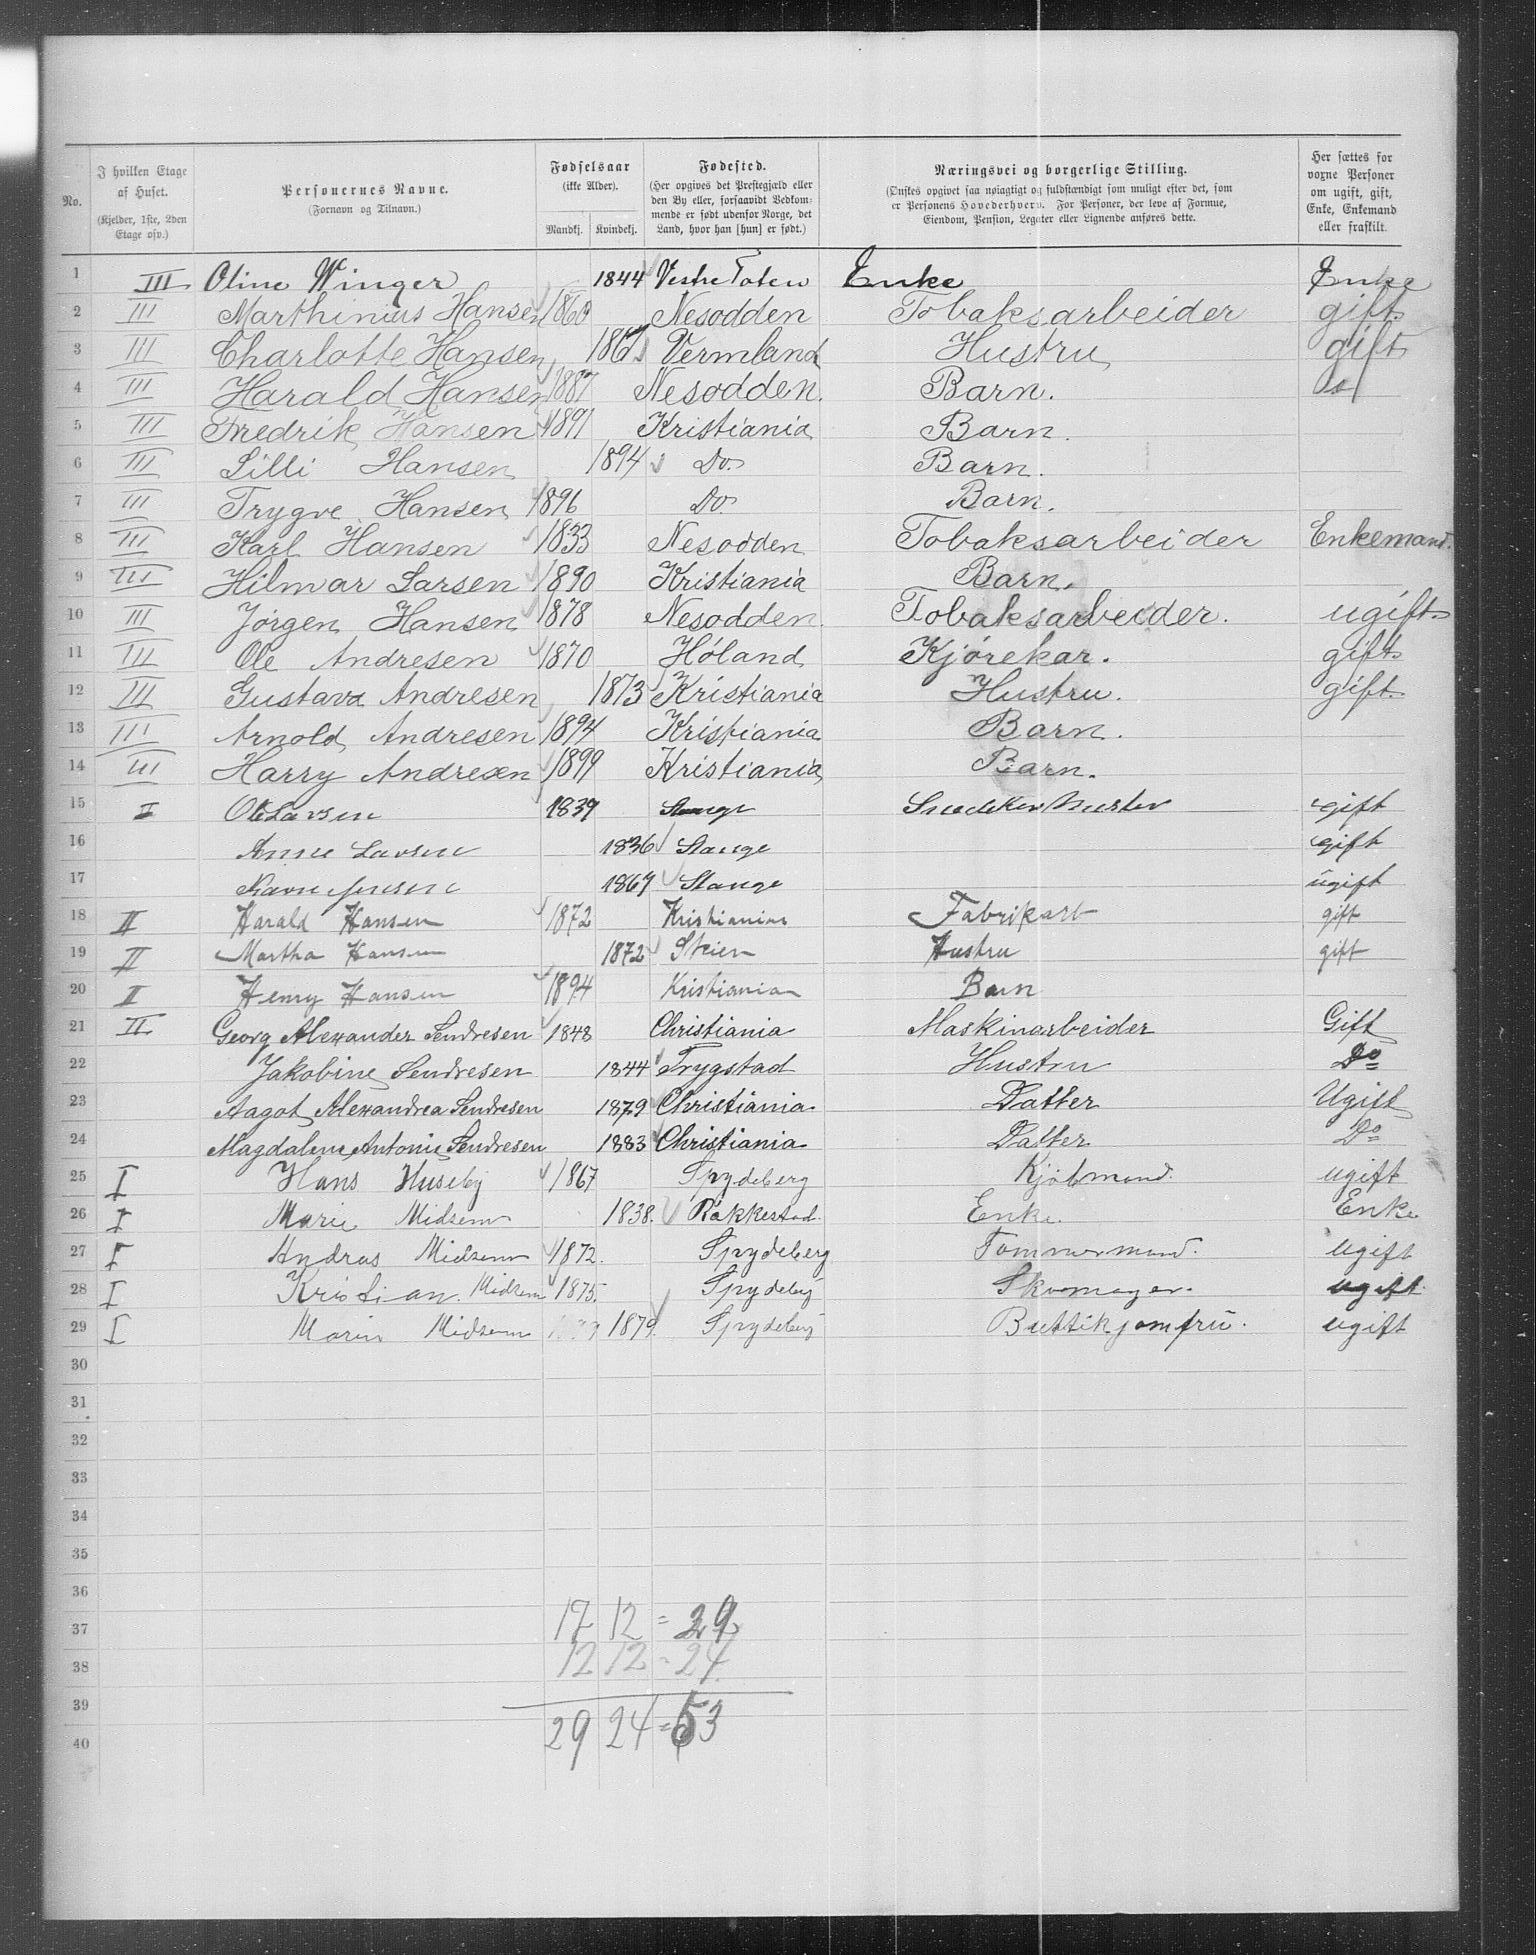 No.
I hvilken Etage af Huset.
(Kjelder, 1ste, 2den Etage osv.)
Personernes Navne.
(Fornavn og Tilnavn.)
Fødselsaar
(ikke Alder).
Mandkj. Kvindekj.
Fødested.
(Her opgives det Prestegjæld eller den By eller, forsaavidt Vedkommende er født udenfor Norge, det Land, hvor han [hun] er født.)
Næringsvei og borgerlige Stilling.
(Ønskes opgivet saa nøiagtigt og fuldstændigt som muligt efter det, som er Personens Hovederhverv. For Personer, der leve af Formue, Eiendom, Pension, Legater eller Lignende anføres dette.
Her sættes for voxne Personer om ugift, gift, Enke, Enkemand eller fraskilt.
1 III Oline Winger 1844 Vestre Toten Enke Enke
2 III Marthinius Hansen 1860 Nesodden Tobaksarbeider gift
3 III Charlotte Hansen Vermland Hustru gift
4 III Harald Hansen 1887 Nesodden. Barn.
5 III Fredrik Hansen 1891 Kristiania Barn.
6 III Lilli Hansen 1894 Do. Barn.
7 III Trygve Hansen 1896 Do Barn.
8 III Karl Hansen 1833 Nesodden Tobaksarbeider Enkemand.
9 III Hilmar Larsen 1890 Kristiania Barn.
10 III Jörgen Hansen 1878 Nesodden. Tobaksarbeider. ugift
11 III Ole Andresen 1870 Höland Kjörekar. gift
12 III Gustava Andresen 1873 Kristiania Hustru. gift
13 III Arnold Andresen 1894 Kristiania Barn.
14 III Harry Andresen 1899 Kristiania Barn.
15 I Ole Larsen 1839 Stange Snedkermester gift
16 Anne Larsen 1836 Stange gift
17 Jensen 1867 Stange ugift
18 II Harald Hansen 1872 Kristiania Fabrikarb gift
19 II Martha Hansen 1872 Skien Hustru gift
20 II Henry Hansen 1894 Kristiania Barn
21 II Georg Alexander Sendresen 1848 Christiania Maskinarbeider Gift
22 Jakobine Sendresen 1844 Trygstad Hustru Do
23 Aagot Alexandrea Sendresen 1879 Christiania Datter Ugift
24 Magdalene Antonie Sendresen 1883 Christiania Datter Do
25 I Hans Huseby 1867 Spydeberg Kjöbmand. ugift
26 I Marie Midsem 1838. Räkkestad. Enke. Enke
27 I Andras Midsem 1872. Spydeberg Tommermand. ugift
28 I Kristian Midsem 1875. Spydeberg Skomager. ugift
29 I Marie Midsem 1879. Spydeberg Buttikjomfru. ugift
30
31
32
33
34
35
36
37 17 12 = 29
38 12 12 = 24
39
40 29 24 = 53